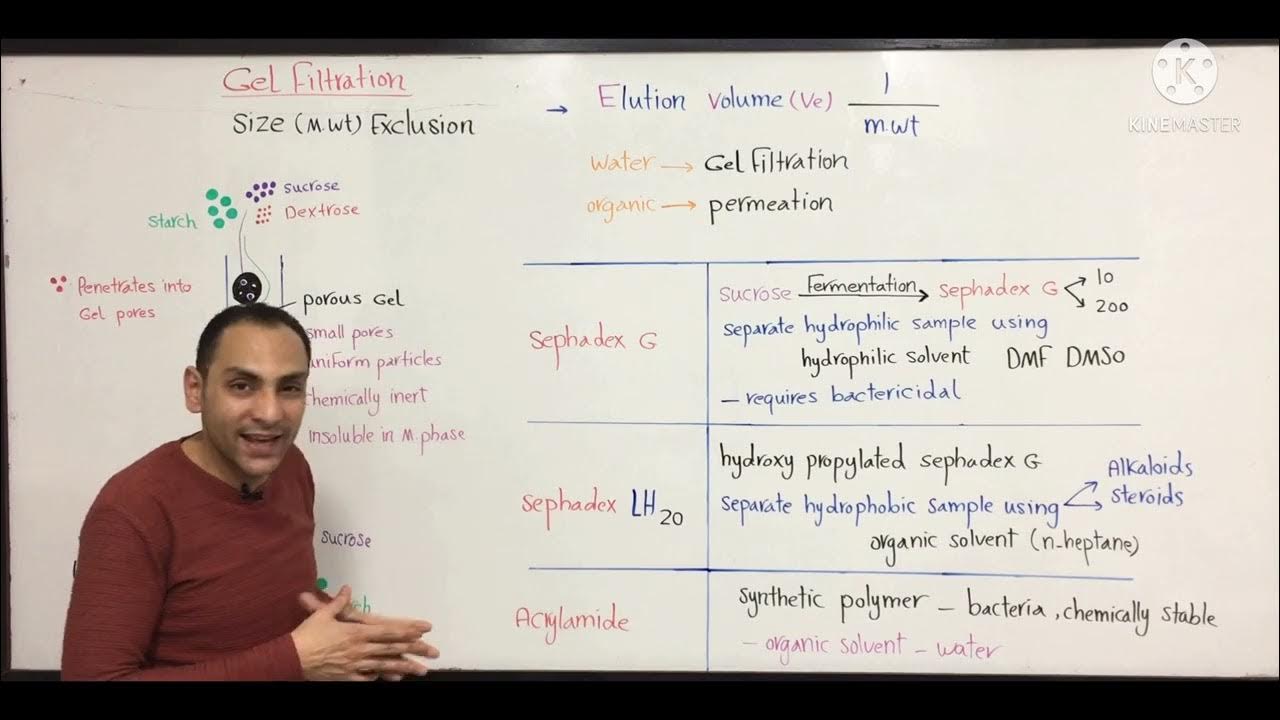 Gel Filtration
Size (M.wt) Exclusion
→ Elution Volume (Ve) 1 / m.wt
water → Gel Filtration
organic → permeation
KINEMASTER
sucrose
Dextrose
starch
Penetrates into
Gel pores
porous Gel
small pores
uniform particles
chemically inert
insoluble in M.phase
sucrose
Sephadex G
sucrose Fermentation → sephadex G 10
200
separate hydrophilic sample using
hydrophilic solvent DMF DMSO
– requires bactericidal
Sephadex LH20
hydroxy propylated sephadex G
separate hydrophobic sample using Alkaloids
steroids
organic solvent (n-heptane)
Acrylamide
synthetic polymer – bacteria, chemically stable
– organic solvent – water